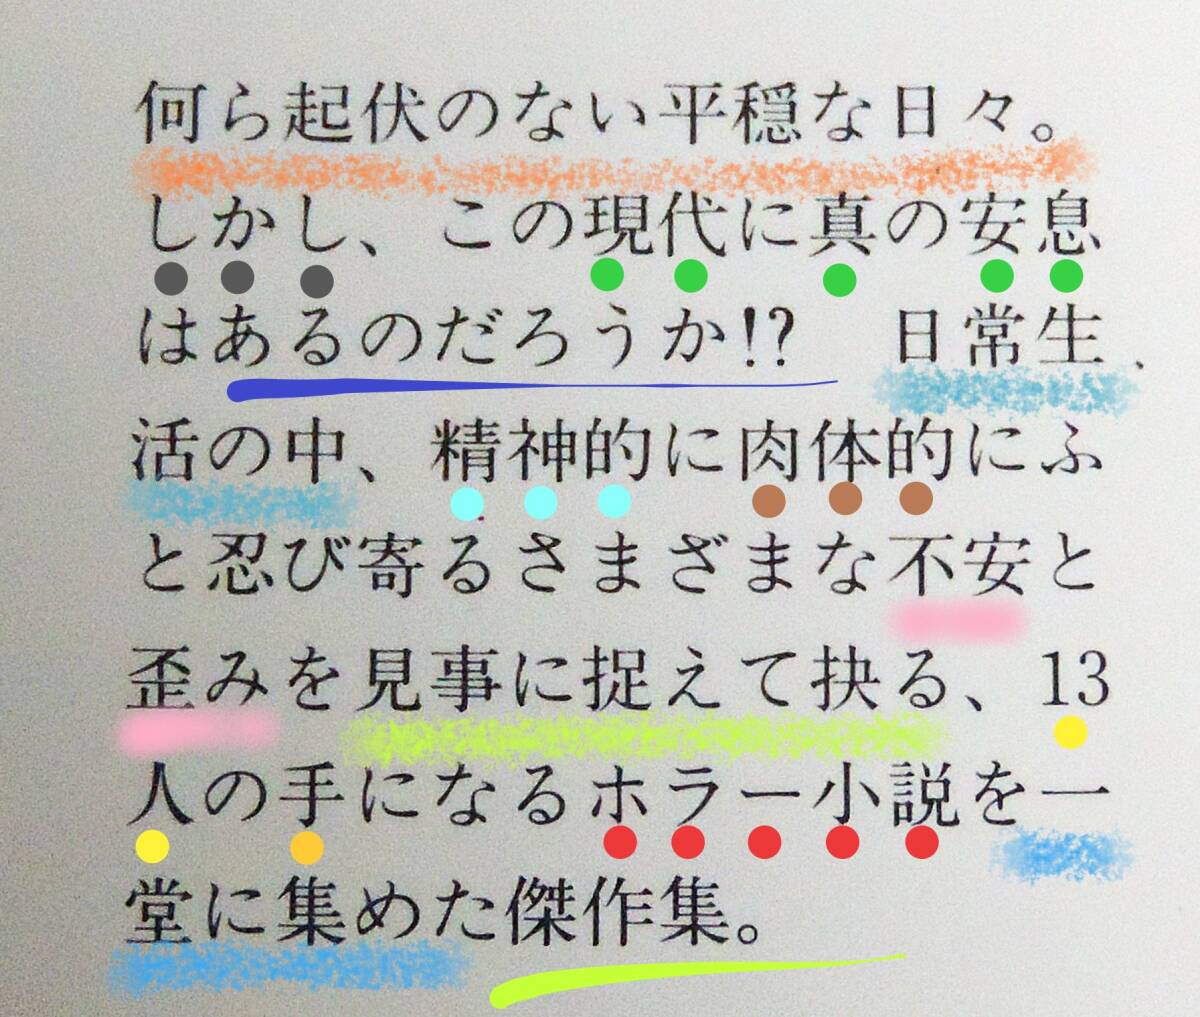 何ら起伏のない平穏な日々。
しかし、この現代に真の安息
はあるのだろうか!?　日常生
活の中、精神的に肉体的にふ
と忍び寄るさまざまな不安と
歪みを見事に捉えて抉る、13
人の手になるホラー小説を一
堂に集めた傑作集。